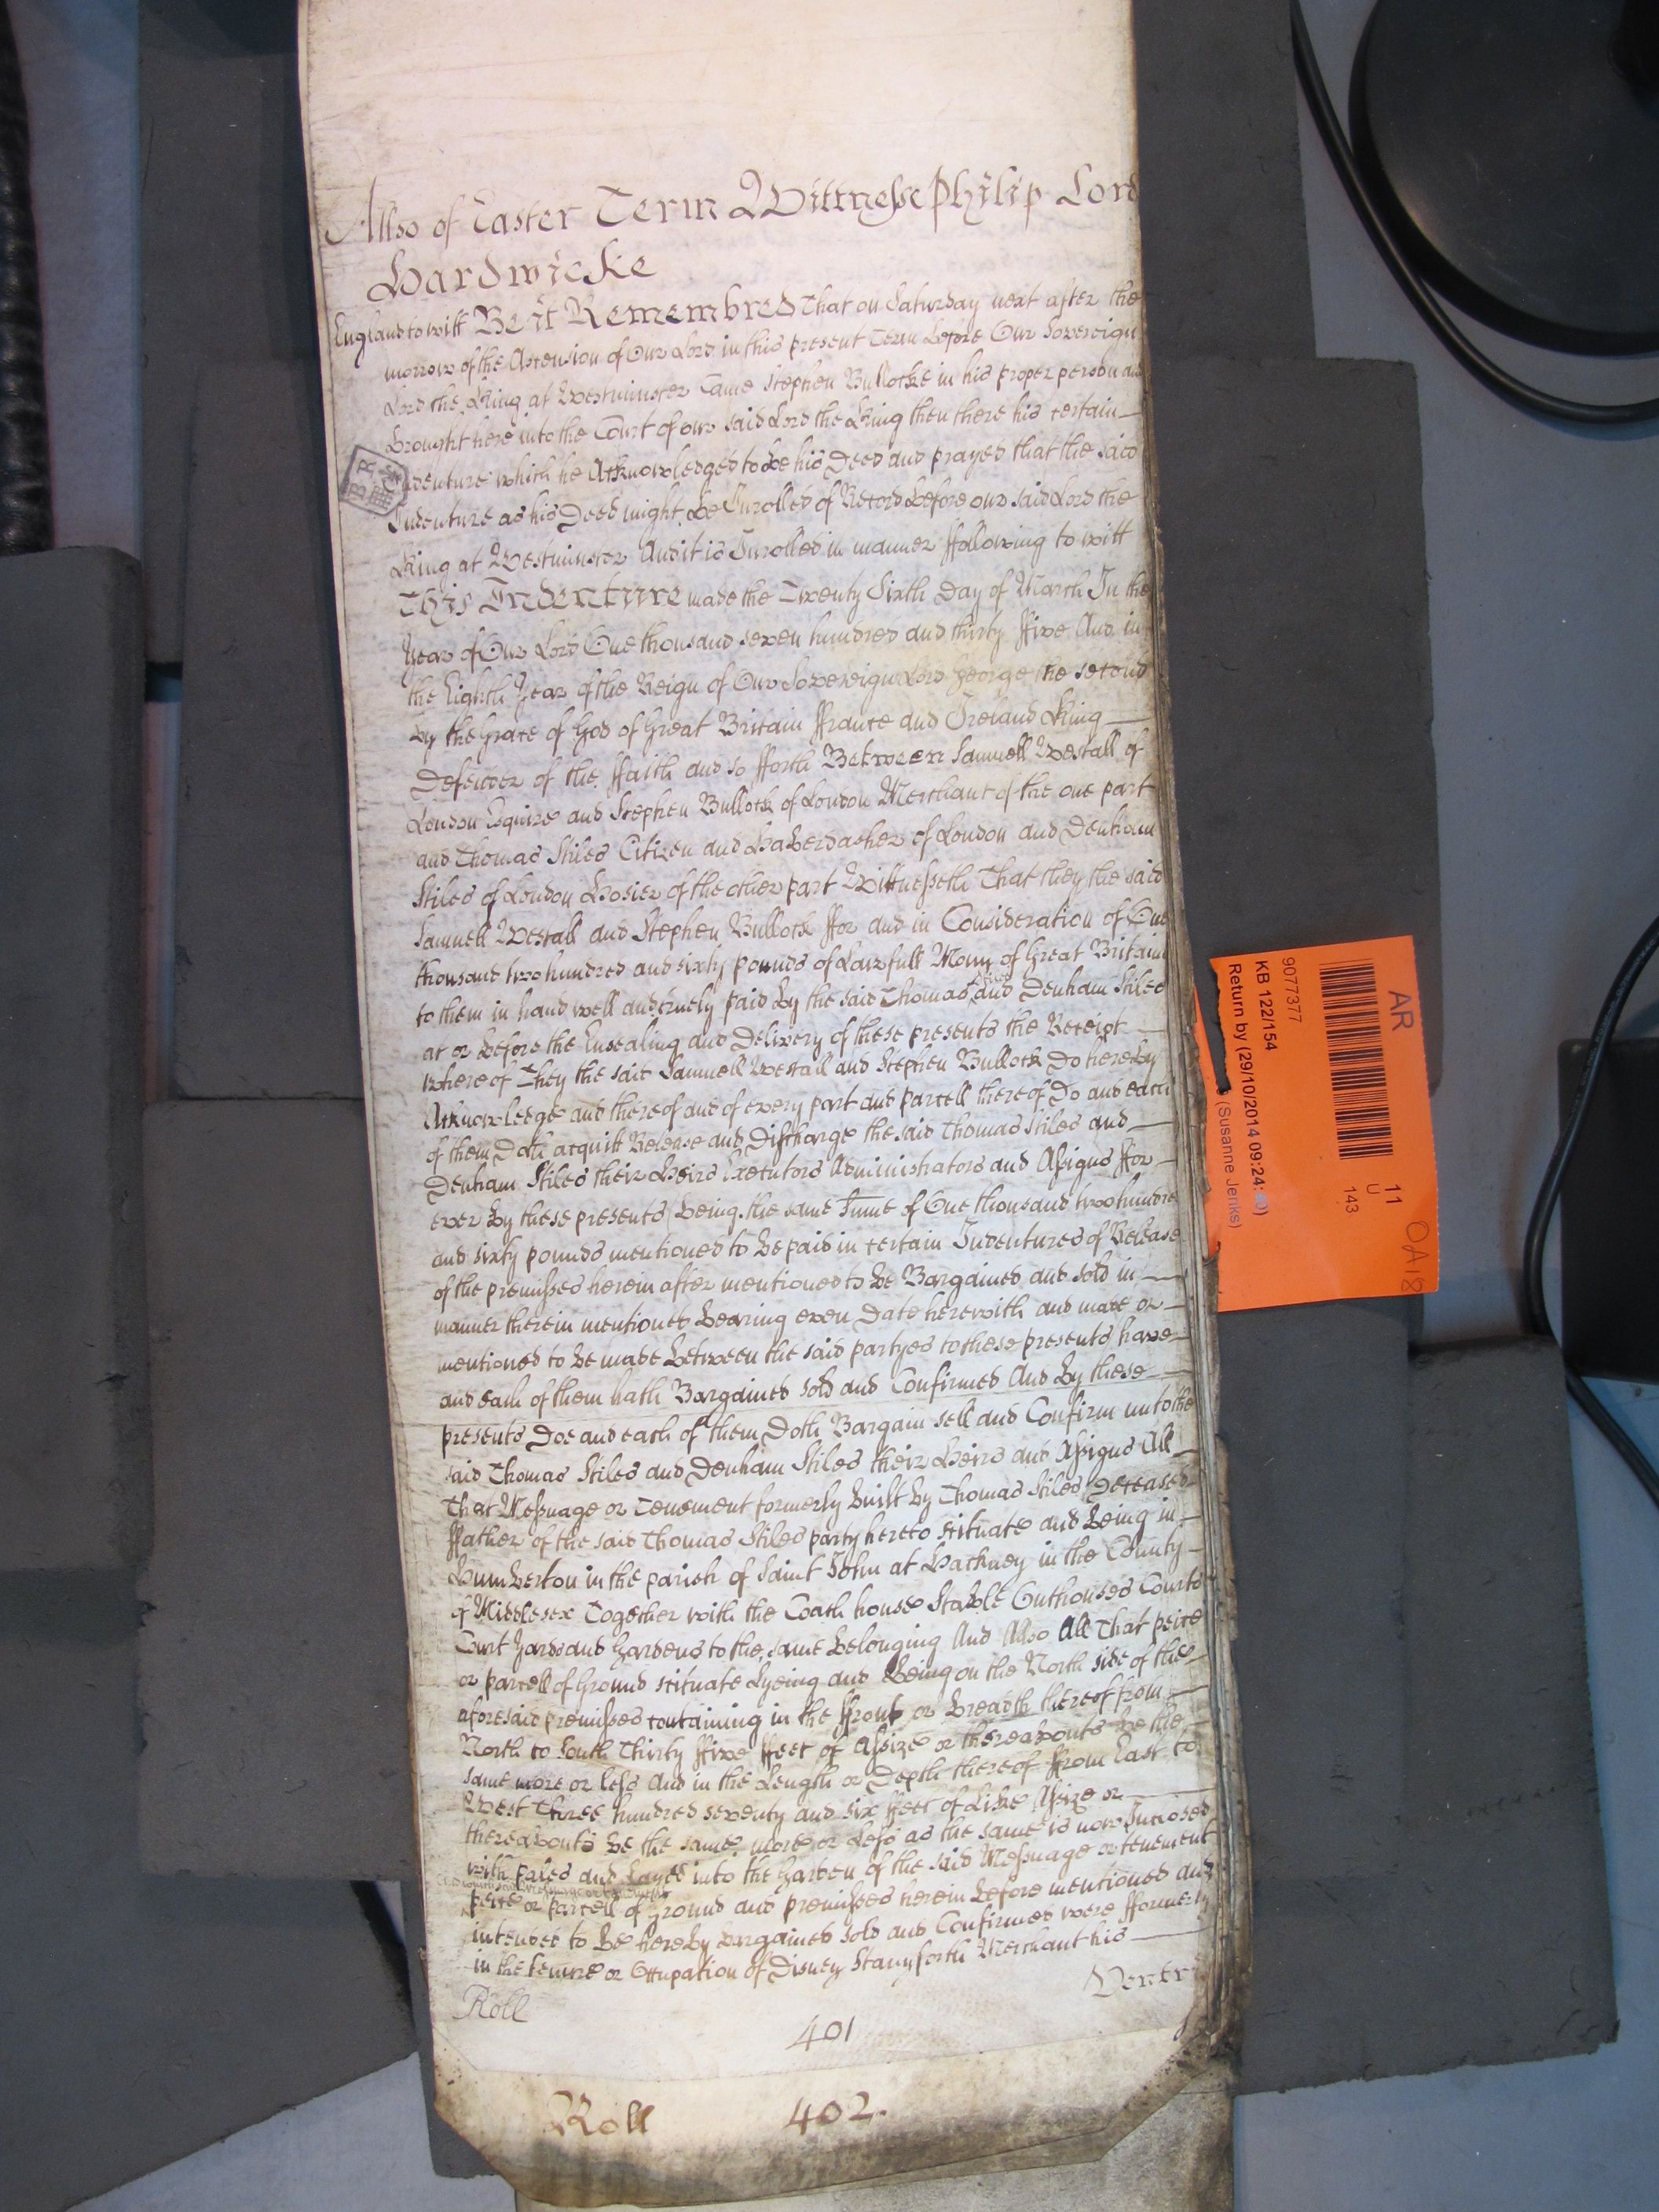 Allso of Easter Term Wittnesse Philip Lord
Hardwicke
England to witt Be it Remembred That on Saturday next after the
morrow of the Ascension of Our Lord in this present Term before Our Sovereign
Lord the King at Westminster Came Stephen Bullocke in his proper person and
brought here into the Court of our said Lord the King then there his certain
Indenture which he Acknowledged to be his Deed and prayed that the said
Indenture as his Deed might be Inrolled of Record before our said Lord the
King at Westminster And it is Inrolled in manner ffollowing to witt
This Indenture made the Twenty Sixth Day of March In the
Year of Our Lord One thousand seven hundred and thirty ffive And in
the Eighth Year of the Reign of Our Sovereign Lord George the second
by the Grace of God of Great Britain ffrance and Ireland King
Defender of the ffaith and so fforth Between Samuell Westall of
London Esquire and Stephen Bullock of London Merchant of the one part
and Thomas Stiles Citizen and Haberdasher of London and Denham
Stiles of London Hosier of the other part Wittnesseth That they the said
Samuell Westall and Stephen Bullock ffor and in Consideration of One
thousand two hundred and sixty pounds of Lawfull Mony of Great Britain
to them in hand well and truely paid by the said Thomas Stiles and Denham Stiles
at or before the Ensealing and Delivery of these presents the Receipt
whereof They the said Samuell Westall and Stephen Bullock Do hereby
Acknowledge and thereof and of every part and parcell thereof Do and each
of them Doth acquitt Release and Discharge the said Thomas Stiles and
Denham Stiles their Heirs Executors Administrators and Assigns ffor
ever by these presents (being the same Sume of One thousand two hundred
and sixty pounds mentioned to be paid in certain Indentures of Release
of the premisses herein after mentioned to be Bargained and sold in
manner therein mentioned bearing even Date herewith and made or
mentioned to be made between the said partyes to these presents have
and each of them hath Bargained sold and Confirmed And by these
presents Doe and each of them Doth Bargain sell and Confirm unto the
said Thomas Stiles and Denham Stiles their Heirs and Assigns All
That Messuage or Tenement formerly built by Thomas Stiles Deceased
ffather of the said Thomas Stiles party hereto scituate and being in
Humberton in the parish of Saint John at Hackney in the County
of Middlesex Together with the Coach house Stable Outhouses Courts
Court Yards and Gardens to the same belonging And Also All That peice
or parcell of Ground scituate Lyeing and being on the North side of the
aforesaid premisses containing in the ffront or breadth thereof from
North to South Thirty ffive ffeet of Assize or thereabouts be the
same more or less And in the Length or Depth thereof ffrom East to
West Three hundred seventy and six ffeet of Like Assize or
thereabouts be the same more or less as the same is now Inclosed
with pales and Layed into the Garden of the said Messuage or tenement
which said Messuage or tenement
peice or parcell of Ground and premisses herein before mentioned and
intended to be hereby bargained sold and Confirmed were fformerly
in the tenure or Occupation of Disney Stanyforth Merchant his
Roll
401
Ventris
Roll 402
B R
AR
11
U
143
OA18
9077377
KB 122/154
Return by (29/10/2014 09:24:
(Susanne Jenks)